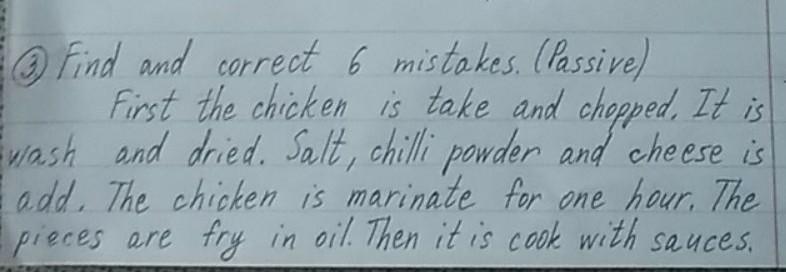 ③ Find and correct 6 mistakes. (Passive)
First the chicken is take and chopped. It is
wash and dried. Salt, chilli powder and cheese is
add. The chicken is marinate for one hour. The
pieces are fry in oil. Then it is cook with sauces.